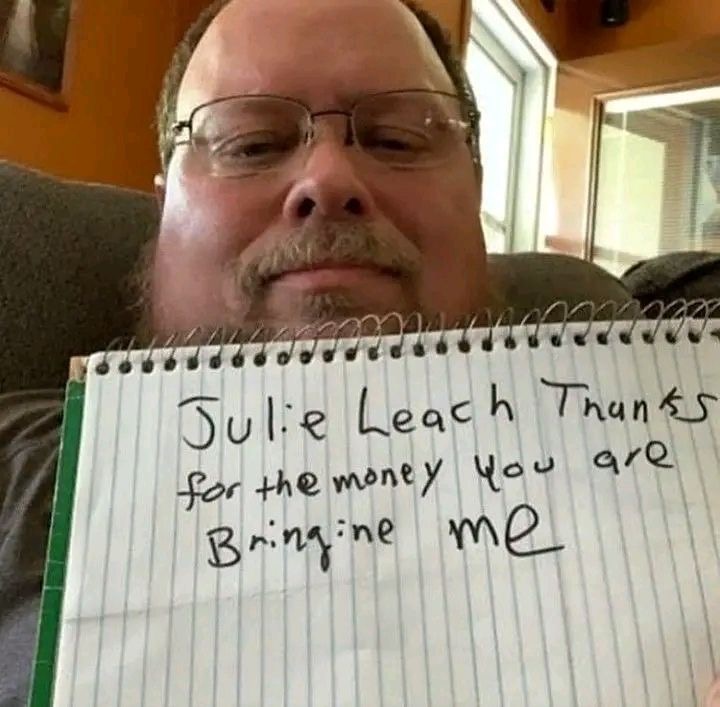 Julie Leach Thanks
for the money you are
Bringine me